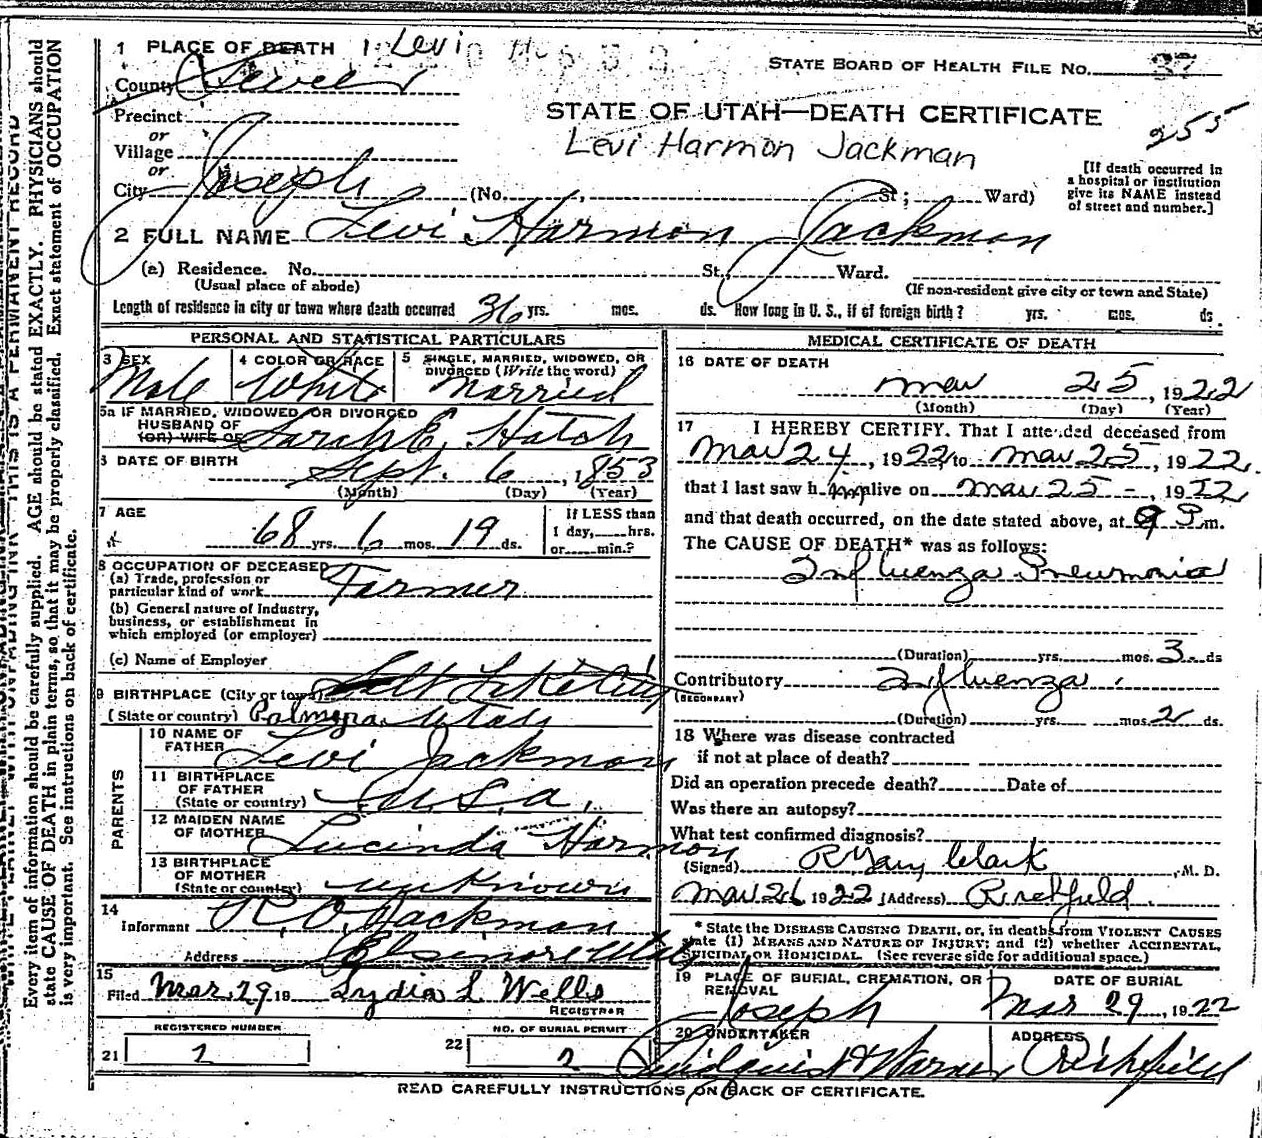 1 PLACE OF DEATH Levi
STATE BOARD OF HEALTH FILE No. 37
County Sevier
Precinct
STATE OF UTAH—DEATH CERTIFICATE
255
or
Village
Levi Harmon Jackman
or
City Joseph (No. St; Ward)
[If death occurred in
a hospital or institution
give its NAME instead
of street and number.]
2 FULL NAME Levi Harmon Jackman
(a) Residence. No. St. Ward.
(Usual place of abode)
(If non-resident give city or town and State)
Length of residence in city or town where death occurred 36 yrs. mos. ds. How long in U. S., if of foreign birth? yrs. mos. ds.
PERSONAL AND STATISTICAL PARTICULARS
3 SEX
Male
4 COLOR OR RACE
White
5 SINGLE, MARRIED, WIDOWED, OR
DIVORCED (Write the word)
Married
5a IF MARRIED, WIDOWED, OR DIVORCED
HUSBAND OF
(OR) WIFE OF Sarah E. Hatch
6 DATE OF BIRTH Sept. 6, 1853
(Month) (Day) (Year)
7 AGE
68 yrs. 6 mos. 19 ds.
If LESS than
1 day, hrs.
or min.?
8 OCCUPATION OF DECEASED
(a) Trade, profession or
particular kind of work Farmer
(b) General nature of Industry,
business, or establishment in
which employed (or employer)
(c) Name of Employer
9 BIRTHPLACE (City or town) Salt Lake City
(State or country) Palmyra Utah
PARENTS
10 NAME OF
FATHER Levi Jackman
11 BIRTHPLACE
OF FATHER
(State or country) U.S.A.
12 MAIDEN NAME
OF MOTHER Lucinda Harmon
13 BIRTHPLACE
OF MOTHER
(State or country) unknown
14
Informant R. O. Jackman
Address Elsinore Utah
15
Filed Mar. 29 19 Lydia L Wells
REGISTRAR
REGISTERED NUMBER
21
NO. OF BURIAL PERMIT
22
MEDICAL CERTIFICATE OF DEATH
16 DATE OF DEATH
Mar 25, 1922
(Month) (Day) (Year)
17 I HEREBY CERTIFY, That I attended deceased from
Mar 24, 1922, to Mar 25, 1922,
that I last saw him alive on Mar 25 -, 1922
and that death occurred, on the date stated above, at 9 P.m.
The CAUSE OF DEATH* was as follows:
Influenza Pneumonia
(Duration) yrs. mos. 3. ds
Contributory Influenza.
(SECONDARY)
(Duration) yrs. mos. 2 ds.
18 Where was disease contracted
if not at place of death?
Did an operation precede death? Date of
Was there an autopsy?
What test confirmed diagnosis?
(Signed) Clark, M. D.
Mar 26 1922 (Address) Richfield
* State the DISEASE CAUSING DEATH, or, in deaths from VIOLENT CAUSES
state (1) MEANS AND NATURE OF INJURY; and (2) whether ACCIDENTAL,
SUICIDAL OR HOMICIDAL. (See reverse side for additional space.)
19 PLACE OF BURIAL, CREMATION, OR
REMOVAL
Joseph
DATE OF BURIAL
Mar 29, 1922
20 UNDERTAKER
ADDRESS
Richfield
READ CAREFULLY INSTRUCTIONS ON BACK OF CERTIFICATE.
Every item of information should be carefully supplied. AGE should be stated EXACTLY. PHYSICIANS should
state CAUSE OF DEATH in plain terms, so that it may be properly classified. Exact statement of OCCUPATION
is very important. See instructions on back of certificate.